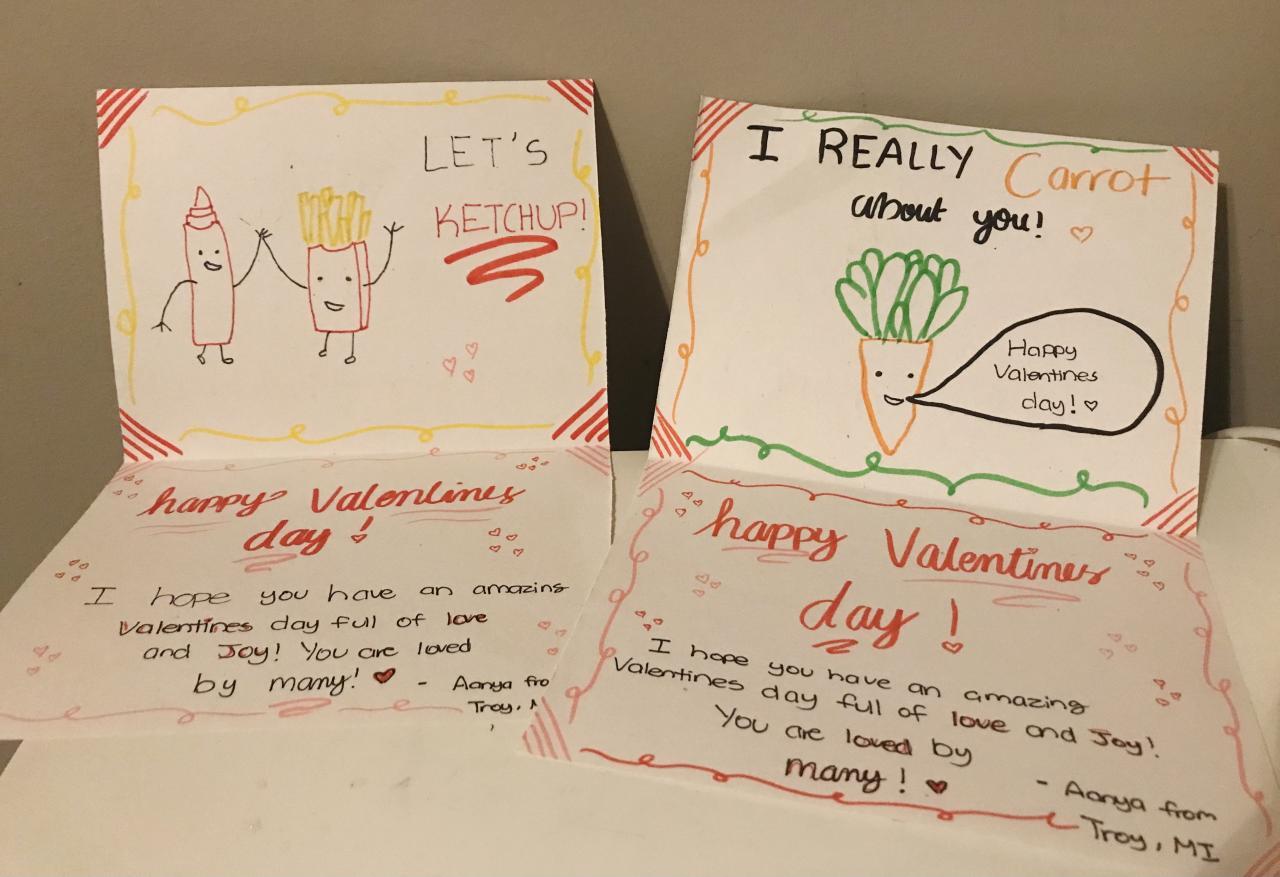 LET'S
KETCHUP!
happy Valentines
day!
I hope you have an amazing
Valentines day full of love
and Joy! You are loved
by many! ♥ - Aanya fro
Troy, M
I REALLY Carrot
about you! ♡
Happy
Valentines
day! ♡
happy Valentines
day!
I hope you have an amazing
Valentines day full of love and Joy!
You are loved by
many! ♥
- Aanya from
Troy, MI